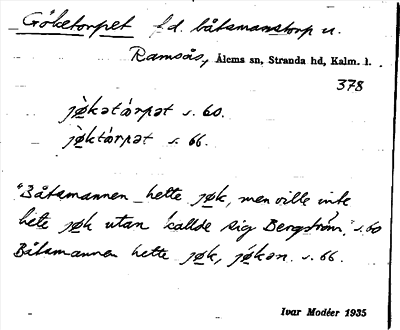 Göketorpet f.d. båtsmanstorp u.
Ramsås, Ålems sn, Stranda hd, Kalm. l.
378
jø̀kətå̀rpət s. 60.
jø̀ktå̀rpət s. 66.
"Båtsmannen hette jøk, men ville inte
hete jøk utan kallde sig Bergström." s. 60
Båtsmannen hette jøk, jǿkən. s. 66.
Ivar Modéer 1935